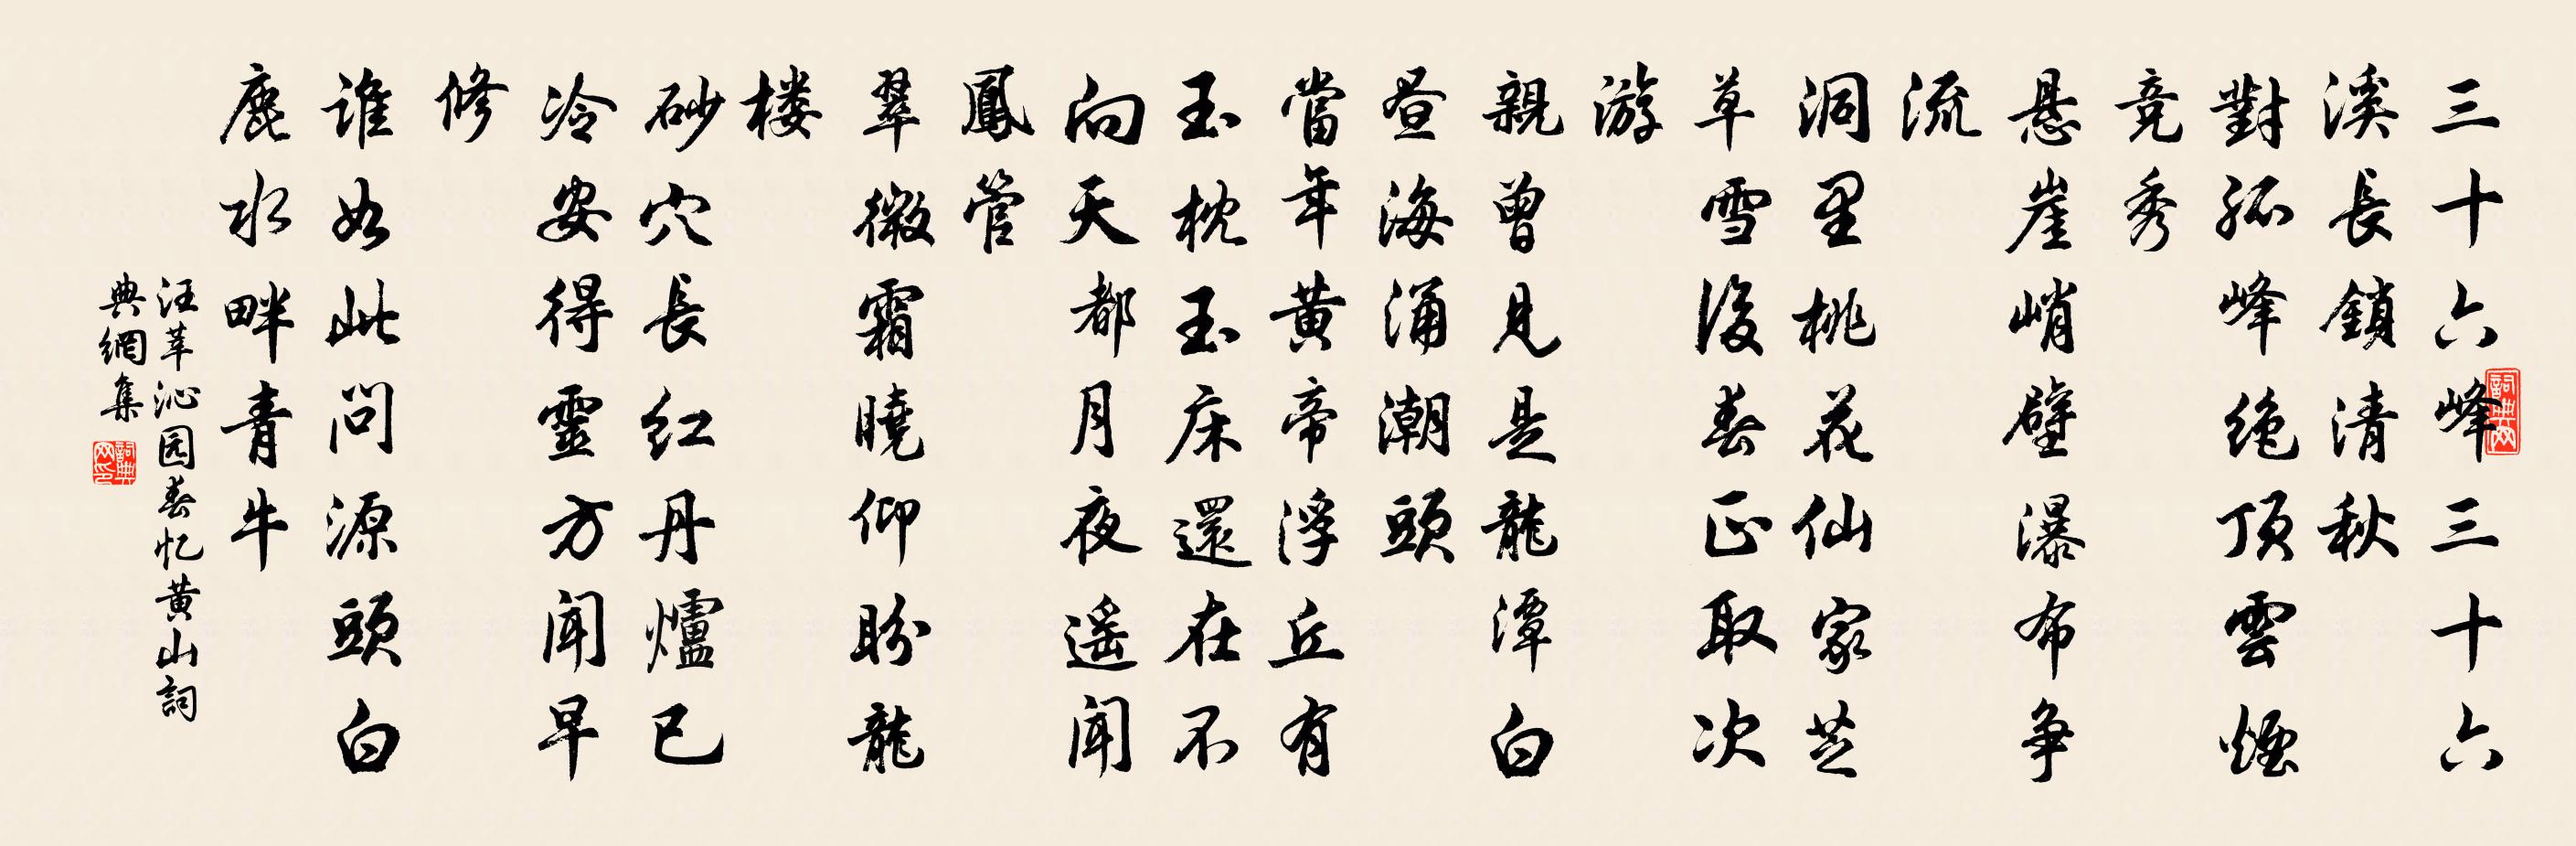 三十六峰三十六
溪長鎖清秋
對孤峰绝顶雲煙
竞秀
悬崖峭壁瀑布争
流
洞里桃花仙家芝
草雪後春正取次
游
親曾見是龍潭白
昼海涌潮頭
當年黄帝浮丘有
玉枕玉床還在不
向天都月夜遥聞
鳳管
翠微霜曉仰盼龍
楼
砂穴長红丹爐已
冷安得靈方聞早
修
谁如此問源頭白
鹿水畔青牛
汪莘沁园春忆黄山詞
典網集
詞典网
詞典网印